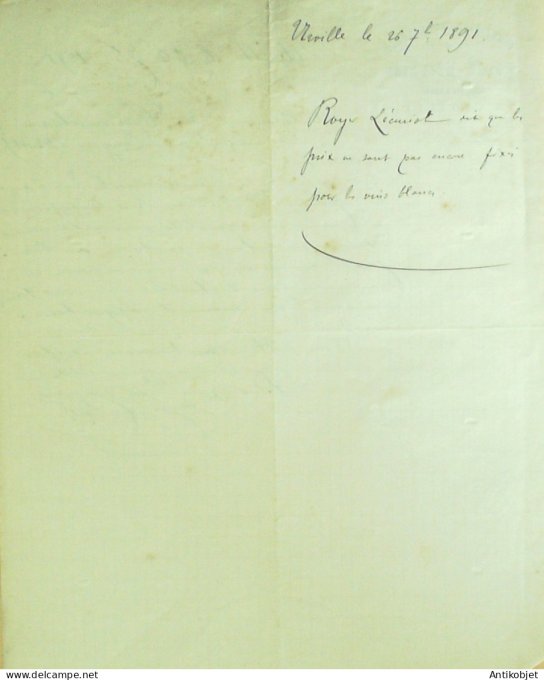 Urville le 26 7b 1891.
Royer Lécuriot dit que les
prix ne sont pas encore fixés
pour les vins blancs
Antikobjet